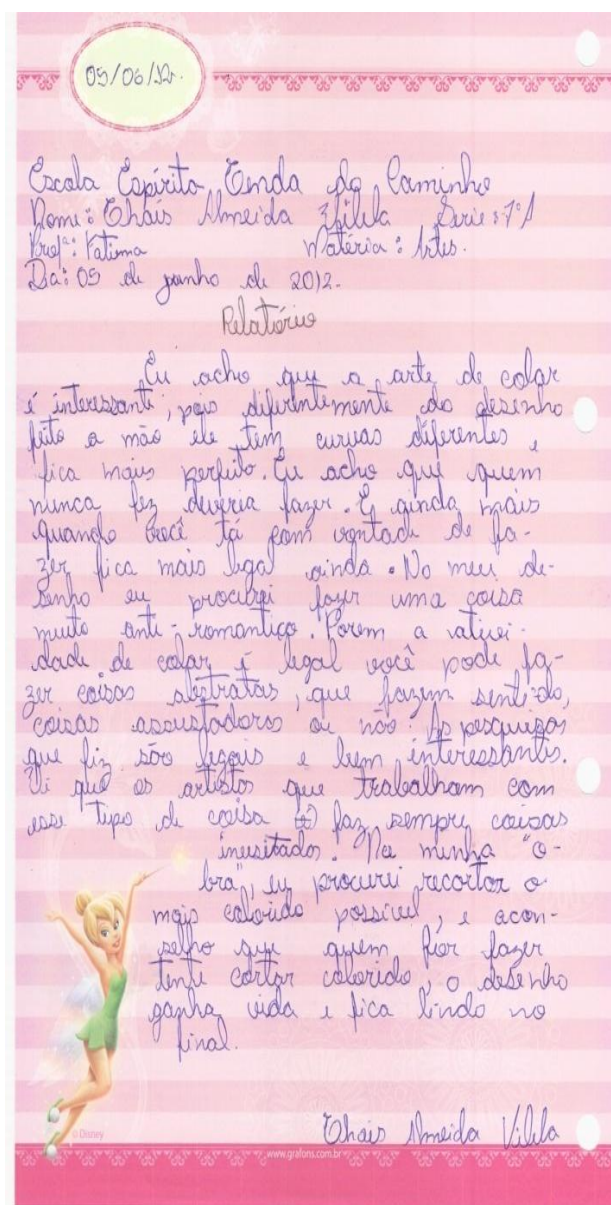 05/06/12.
Escola Espírita Tenda do Caminho
Nome: Thaís Almeida Vilela Serie: 7ª A
Profª: Fatima Matéria: Artes.
Dia: 05 de junho de 2012.
Relatório
Eu acho que a arte de colar
é interessante, pois diferintemente do desenho
feito a mão ele tem curvas diferentes e
fica mais perfeito. Eu acho que quem
nunca fez deveria fazer. E ainda mais
quando você tá com vontade de fa-
zer fica mais legal ainda. No meu de-
senho eu procurei fazer uma coisa
muito anti-romantiço. Porem a ativi-
dade de colar é legal você pode fa-
zer coisas abstratas, que fazem sentido,
coisas assustadoras ou não. As pesquisas
que fiz são legais e bem interessantes.
Vi que os artistas que trabalham com
esse tipo de coisa faz sempre coisas
inusitados. Na minha "o-
bra", eu procurei recortar o
mais colorido possível, e acon-
selho que quem for fazer
tente cortar colorido, o desenho
ganha vida e fica lindo no
final.
Thais Almeida Vilela
© Disney
www.grafons.com.br